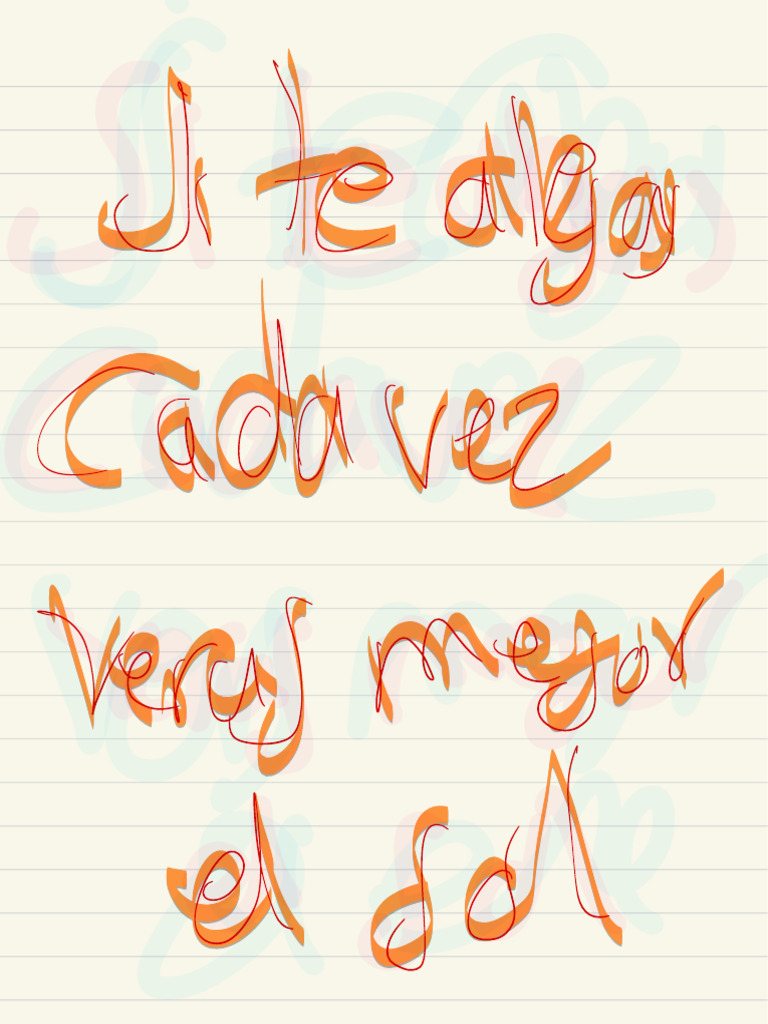 Si te alejas
Cada vez
veras mejor
el sol